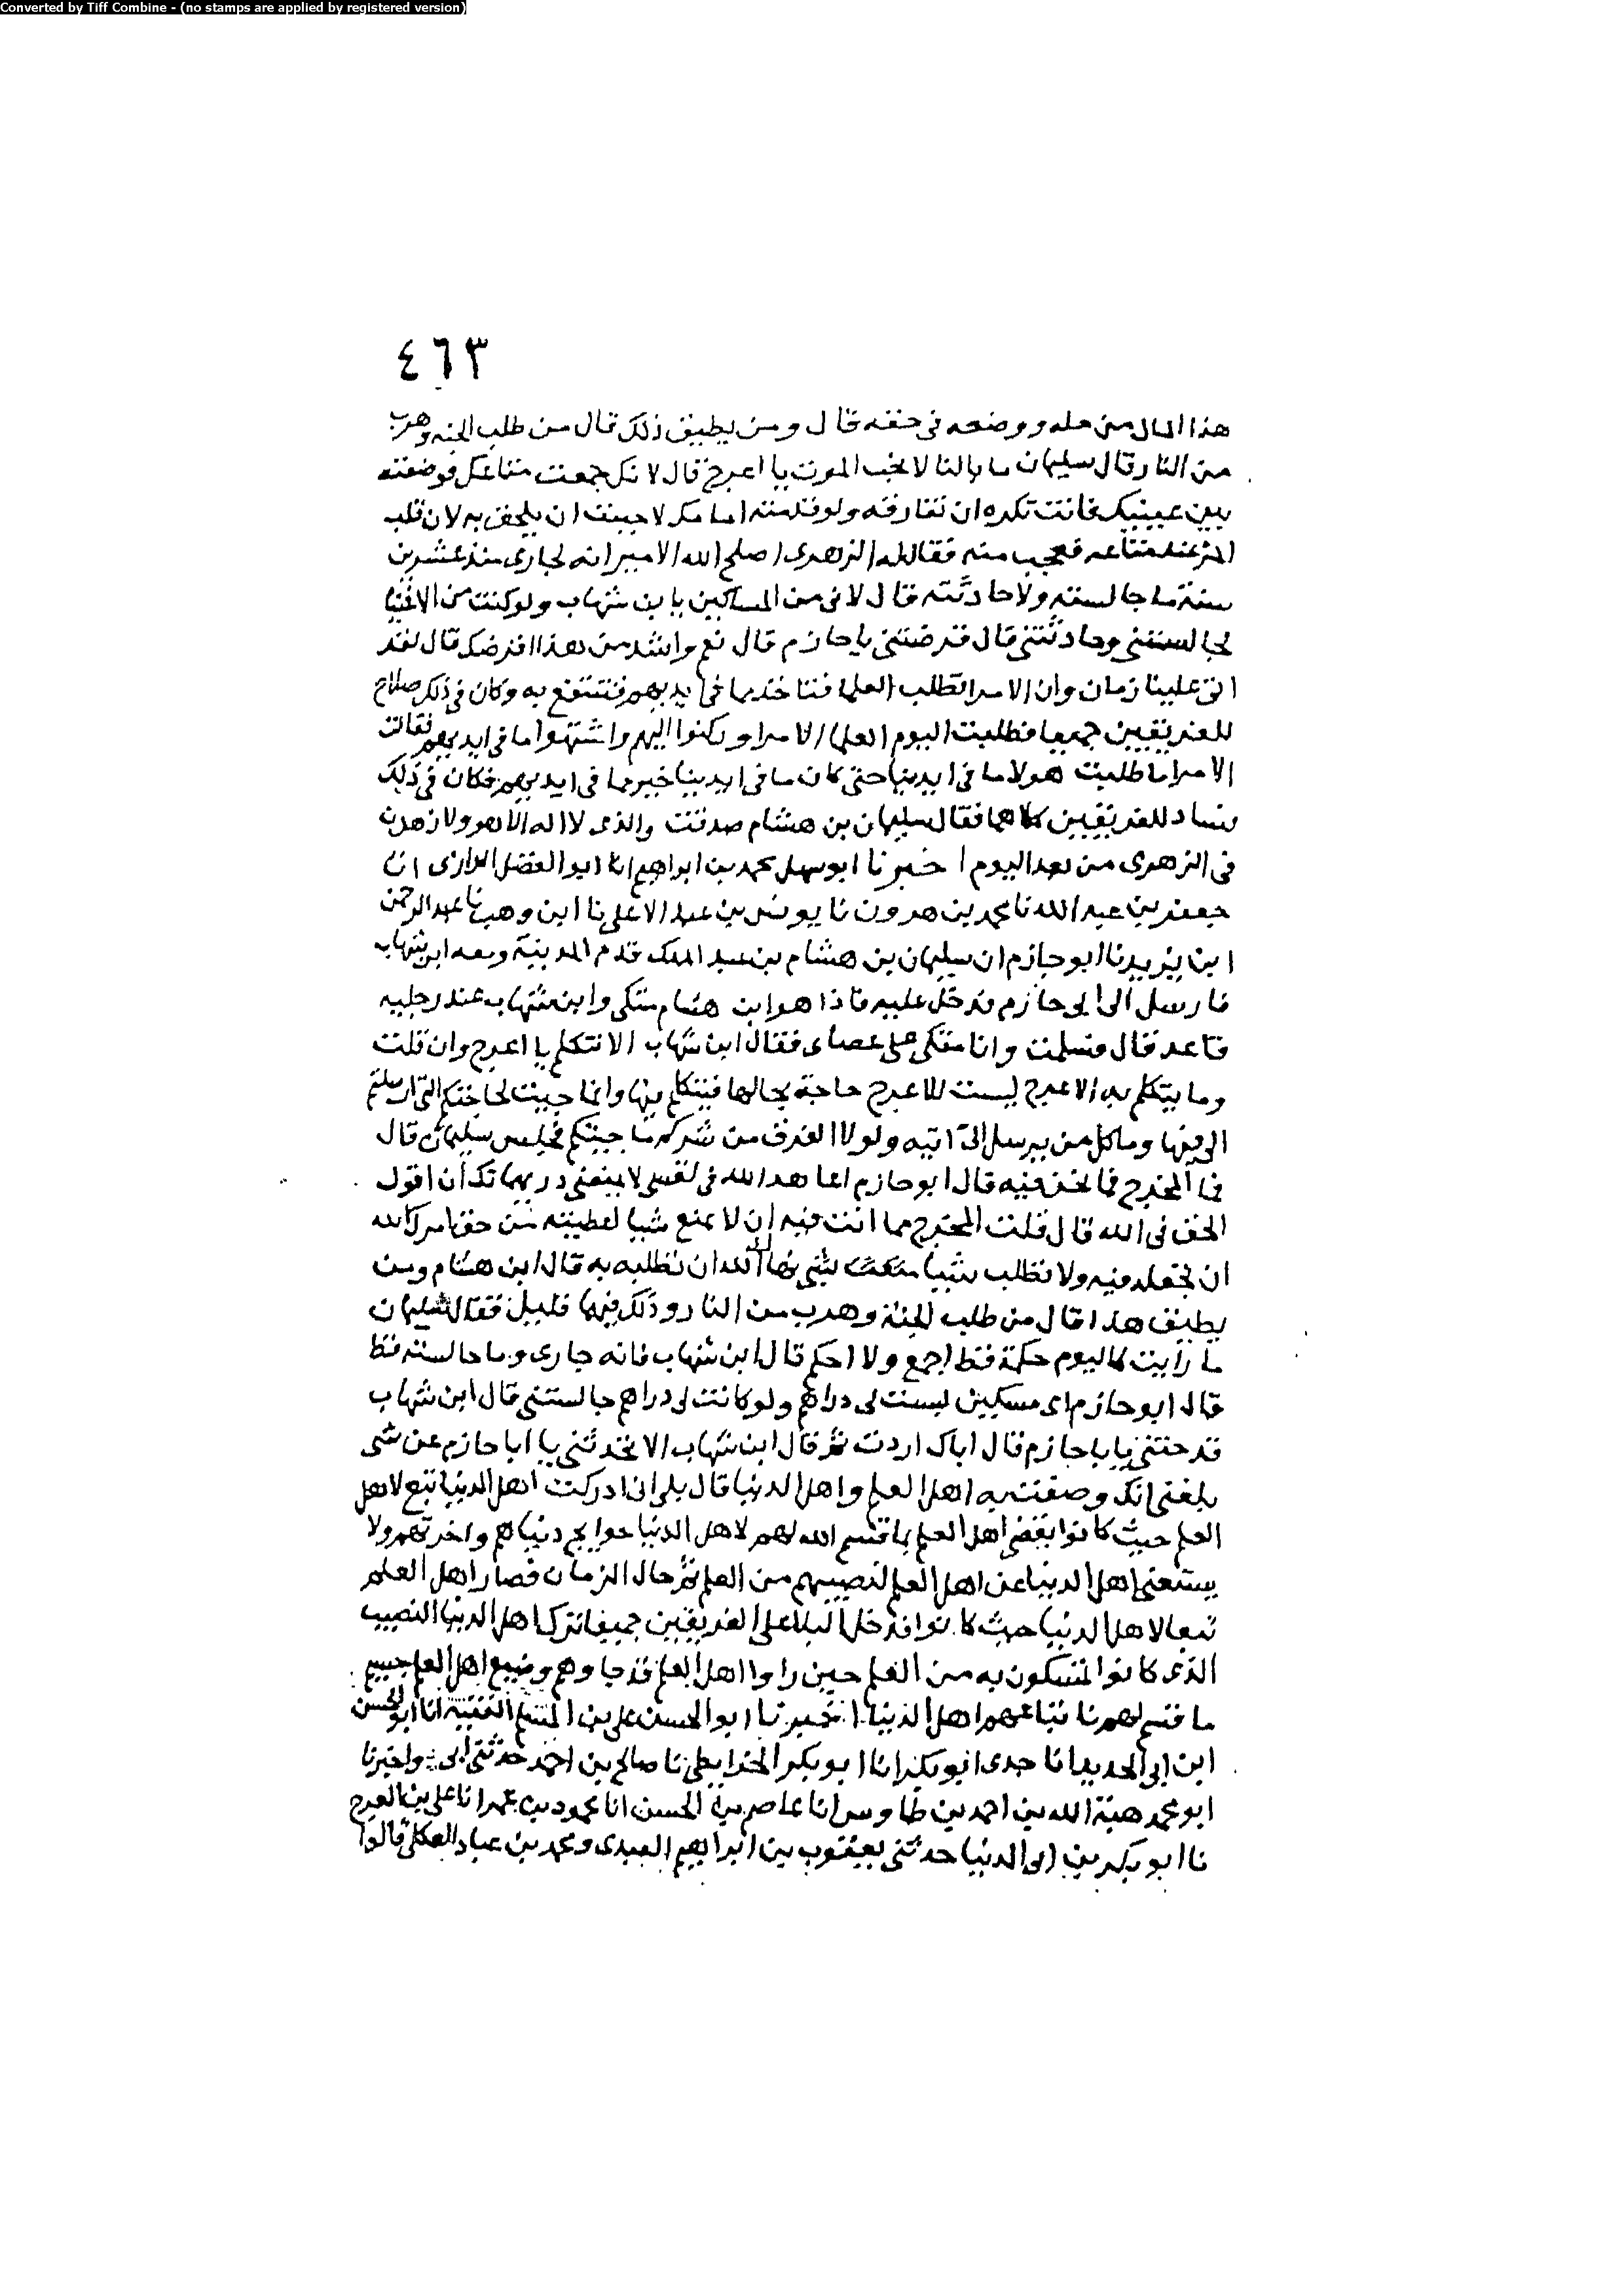 Converted by Tiff Combine - (no stamps are applied by registered version)
٤٦٣
هذا المال من حله ووضعه في حقه قال ومن يطيق ذلك قال من طلب الجنه وهرب
من النار قال سليمان ما بالنا لا نحب الموت يا اعرج قال لانك جمعت متاعك فوضعته
بين عينيك فانت تكره ان تفارقه ولو قدمته امامك لاحببت ان يلحق به لان قلب
المرء عند متاعه فعجب منه فقال له الزهري اصلح الله الامير انه لجاري منذ عشرين
سنة ما جالسته ولا حادثته قال لاني من المساكين يا بن شهاب ولو كنت من الاغنيا
لجالستني وحادثتني قال قرضتني يا حازم قال نعم واشد من هذا اقرضك قال لقد
اتى علينا زمان وان الامرا تطلب العلما فتاخذ مما في ايديهم فتنتفع به وكان في ذلك صلاح
للفريقين جميعا فطلبت اليوم العلما الامرا وركنوا اليهم واشتهوا ما في ايديهم فقالت
الامرا ما طلبت هولا ما في ايدينا حتى كان ما في ايدينا خير مما في ايديهم فكان في ذلك
فساد للفريقين كلاهما فقال سليمان بن هشام صدقت والذي لا اله الا هو ولا زهدن
في الزهري من بعد اليوم اخبرنا ابو سهل محمد بن ابراهيم انا ابو الفضل الرازي انا
جعفر بن عبد الله نا محمد بن هرون نا يونس بن عبد الاعلى نا ابن وهب نا عبد الرحمن
ابن يزيد نا ابو حازم ان سليمان بن هشام بن عبد الملك قدم المدينة ومعه ابن شهاب
فارسل الى ابي حازم فدخل عليه فاذا هو ابن هشام متكى وابن شهاب عند رجليه
قاعد قال فسلمت وانا متكى على عصاى فقال ابن شهاب الا تتكلم يا اعرج وان قلت
وما يتكلم به الاعرج ليست للاعرج حاجة يجا لها فيتكلم بها وانما جيت لحاجتكم التي ارسلتم
الي فيها وما كل من يرسل الي اتيه ولولا الفرق من شركم ما جيتكم فجلس سليمان قال
فما المخرج مما نحن فيه قال ابو حازم اعاهد الله في نفسي لا يمنعني دريهماتك ان اقول
الحق في الله قال قلت المخرج مما انت فيه ان لا تمنع شيا اعطيته من حق امرك الله
ان تجعله فيه ولا تطلب شيا بشي نهاك الله ان تطلبه به قال ابن هشام ومن
يطيق هذا قال من طلب الجنة وهرب من النار وذلك فيهما قليل فقال سليمان
ما رايت كاليوم حكمة قط اجمع ولا احكم قال ابن شهاب فانه جاري وما جالسته قط
قال ابو حازم اى مسكين ليست لي دراهم ولو كانت لي دراهم جالستني قال ابن شهاب
قرصتني يا با حازم قال اياك اردت ثم قال ابن شهاب الا تحدثني يا ابا حازم عن شى
بلغني انك وصفت به اهل العلم واهل الدنيا قال بلى اني ادركت اهل الدنيا تبع لاهل
العلم حيث كانوا يقضي اهل العلم بما قسم الله لهم لاهل الدنيا حوايج دنياهم واخرتهم ولا
يستغني اهل الدنيا عن اهل العلم لنصيبهم من العلم ثم حال الزمان فصار اهل العلم
تبعا لاهل الدنيا حيث كانوا فدخل البلاء على الفريقين جميعا ترك اهل الدنيا النصيب
الذي كانوا يتمسكون به من العلم حين راوا اهل العلم قد جاوهم وضيع اهل العلم جسيم
ما قسم لهم باتباعهم اهل الدنيا اخبرنا ابو الحسن علي بن المسلم الفقيه انا ابو الحسن
ابن ابي الحديد انا جدي ابو بكر انا ابو بكر الخرايطي نا صالح بن احمد حدثني ابي واخبرنا
ابو محمد هبة الله بن احمد بن طاوس انا عاصم بن الحسن انا محمود بن عمر انا علي بن الفرج
نا ابو بكر بن ابي الدنيا حدثني يعقوب بن ابراهيم العبدي ومحمد بن عباد العكلي قالوا